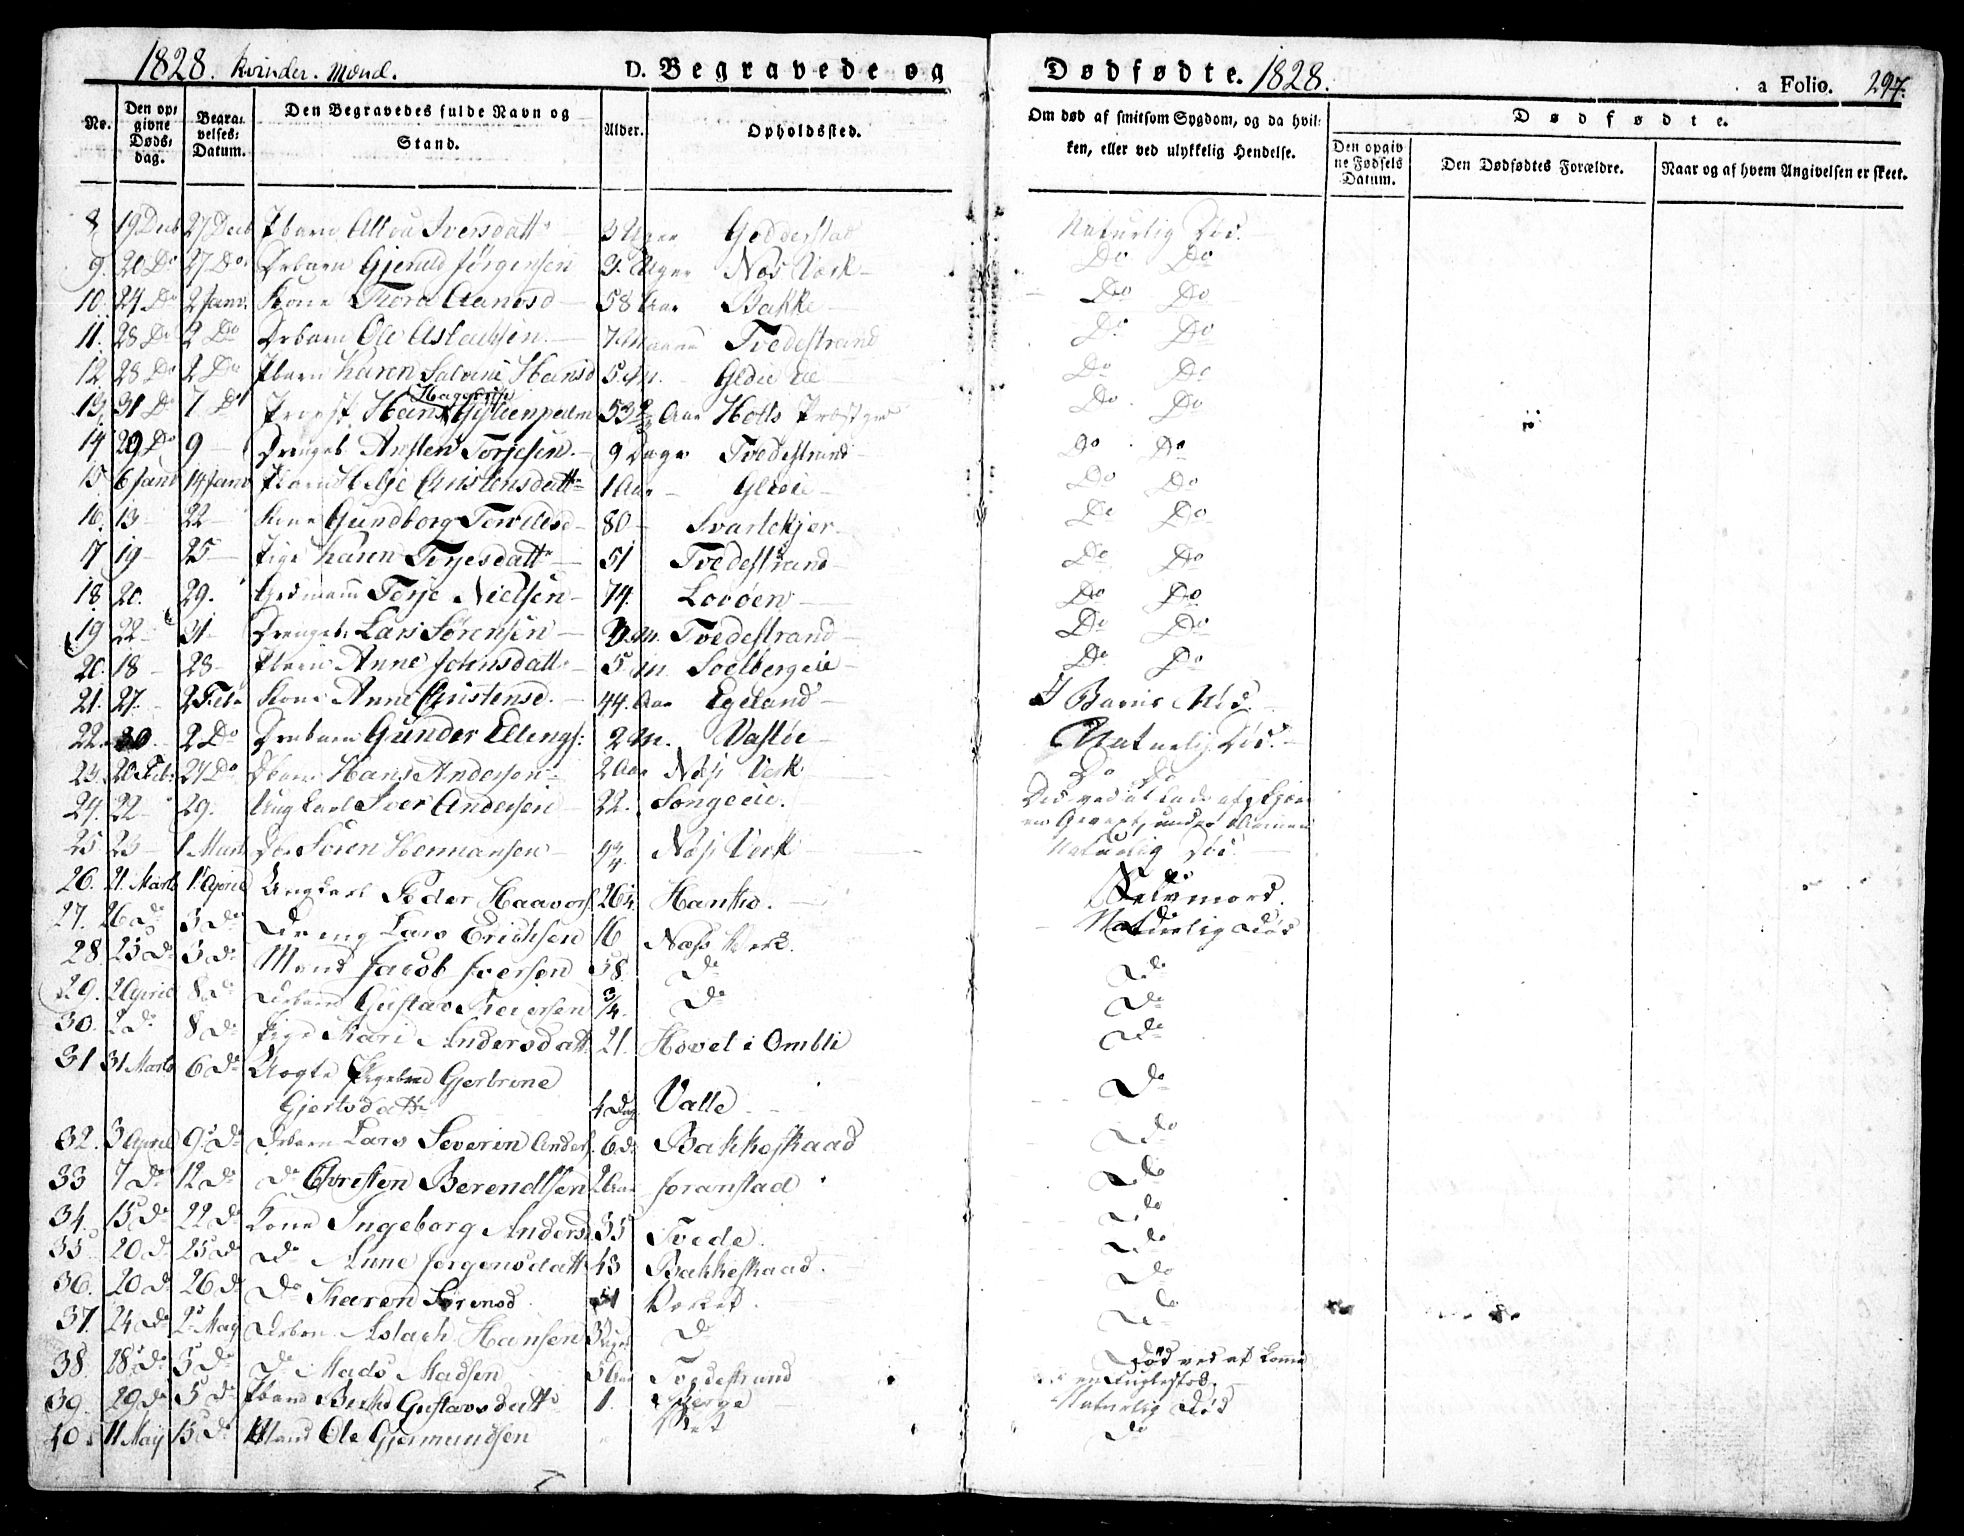 1828. Kvinder. Mænd. D. Begravede og
Dødfødte. 1828. a Folio. 297.
No. Den opgivne Dødsdag. Begravelses-Datum. Den Begravedes fulde Navn og Stand. Alder. Opholdssted.
Om død af smitsom Sygdom, og da hvilken, eller ved ulykkelig Hendelse. Dødfødte.
Den opgivne Fødsels Datum. Den Dødfødtes Forældre. Naar og af hvem Angivelsen er skeet.
8 19 Decb 27 Decb Pbarn Iversdattr 3 Uger Godderstad Naturlig Død.
9. 20 Do 27 Do. Drbarn Gjeruld Jørgensen 3. Uger Næs Værk Do Do
10. 24 Do 2 Janv. Kone Thora Aanesd 58 Aar Bakke Do Do
11. 28 Do 2 Do Drbarn Ole Aslachsen 7 Tvedestrand Do Do
12. 28 Do 2 Do Pbarn Karen Hansd 5. M. Do Do
13. 31 Do 7 Do Provst Hans Gyllenpalm 53 Aar Holts Præstgrd Do Do
14 29 Do 9 Drengeb Torjesen 9 Dage Tvedestrand Do Do
15 6 Janv 14 Janv Christensdattr 1 Aar Do Do
16. 13 22 Kone Gundborg 80 Svartekjer Do Do
17 19 25 Pige Karen Torjesdattr 51 Tvedestrand Do Do
18. 20. 29. Grdmann Torje Nielsen 74. Lovøen Do Do
19 22 31 Drengeb. Lars Sørensen M. Tvedestrand Do Do
20. 18 28 Pbarn Anne Johnsdattr 5 M. Soelbergeie Do Do
21. 27. 2 Feb. Kone Anne Christensd. 44. Aar Egeland I Barns Nød.
22. 30 2 Do Drebarn Gunder Ellings: 2 M. Naturlig Død.
23. 20 Feb. 27 Do Dbarn Hans Andersen 2 Aar Næss Verk Do Do
24. 22 29. Ungkarl Iver Andersen 22. Songeeie. Død ved at lade
en Gevær, under
25 23 1 Marts Søren Hermansen Næss Verk Naturlig Død
26. 21. Marts 1 April Ungkarl Peder Haavors 26 Hanto. Selvmord.
27. 26 Do 3 Do Dreng Lars Erichsen 16 Næss Verk. Naturlig Død
28. 25 Do 3 Do Mand Jacob Iversen 58. Do Do
29. 2 April 8 Do Drbarn Gustav Iversen 3/4. Do Do
30. 2 Do 8 Do Pige Kari Andersdattr 21. Hovel i Ombli Do
31 31 Marts 6 Do Uægte Pigebrn Gjertrine
Gjertsdattr 4 Dag. Valle Do
32. 3 April 9 Do Drbarn Lars Severin Anders. 6 Do Bakkeskaad Do
33 7 Do 12 Do Do Christen Berendtsen 2 Aar Joranstad Do
34. 15 Do 22 Do Kone Ingeborg Anders. 35 Tvede. Do
35. 20 Do 25 Do Do Anne Jørgensdattr 43 Bakkeskaad. Do
36. 20 Do 26 Do Do Karen Sørensd. 51 Verket. Do
37. 24 Do 2 May Drbrn Aslach Hansen 3 Uger Do Do
38. 28 Do 5 Do Do Mads Madsen 5 Aar Tvedestrand Død ved at
39. 29 Do 5 Do Pbarn Gustavsdattr 1. Berge Naturlig Død
40. 11 May 15 Do Mand Ole Gjermundsen Do